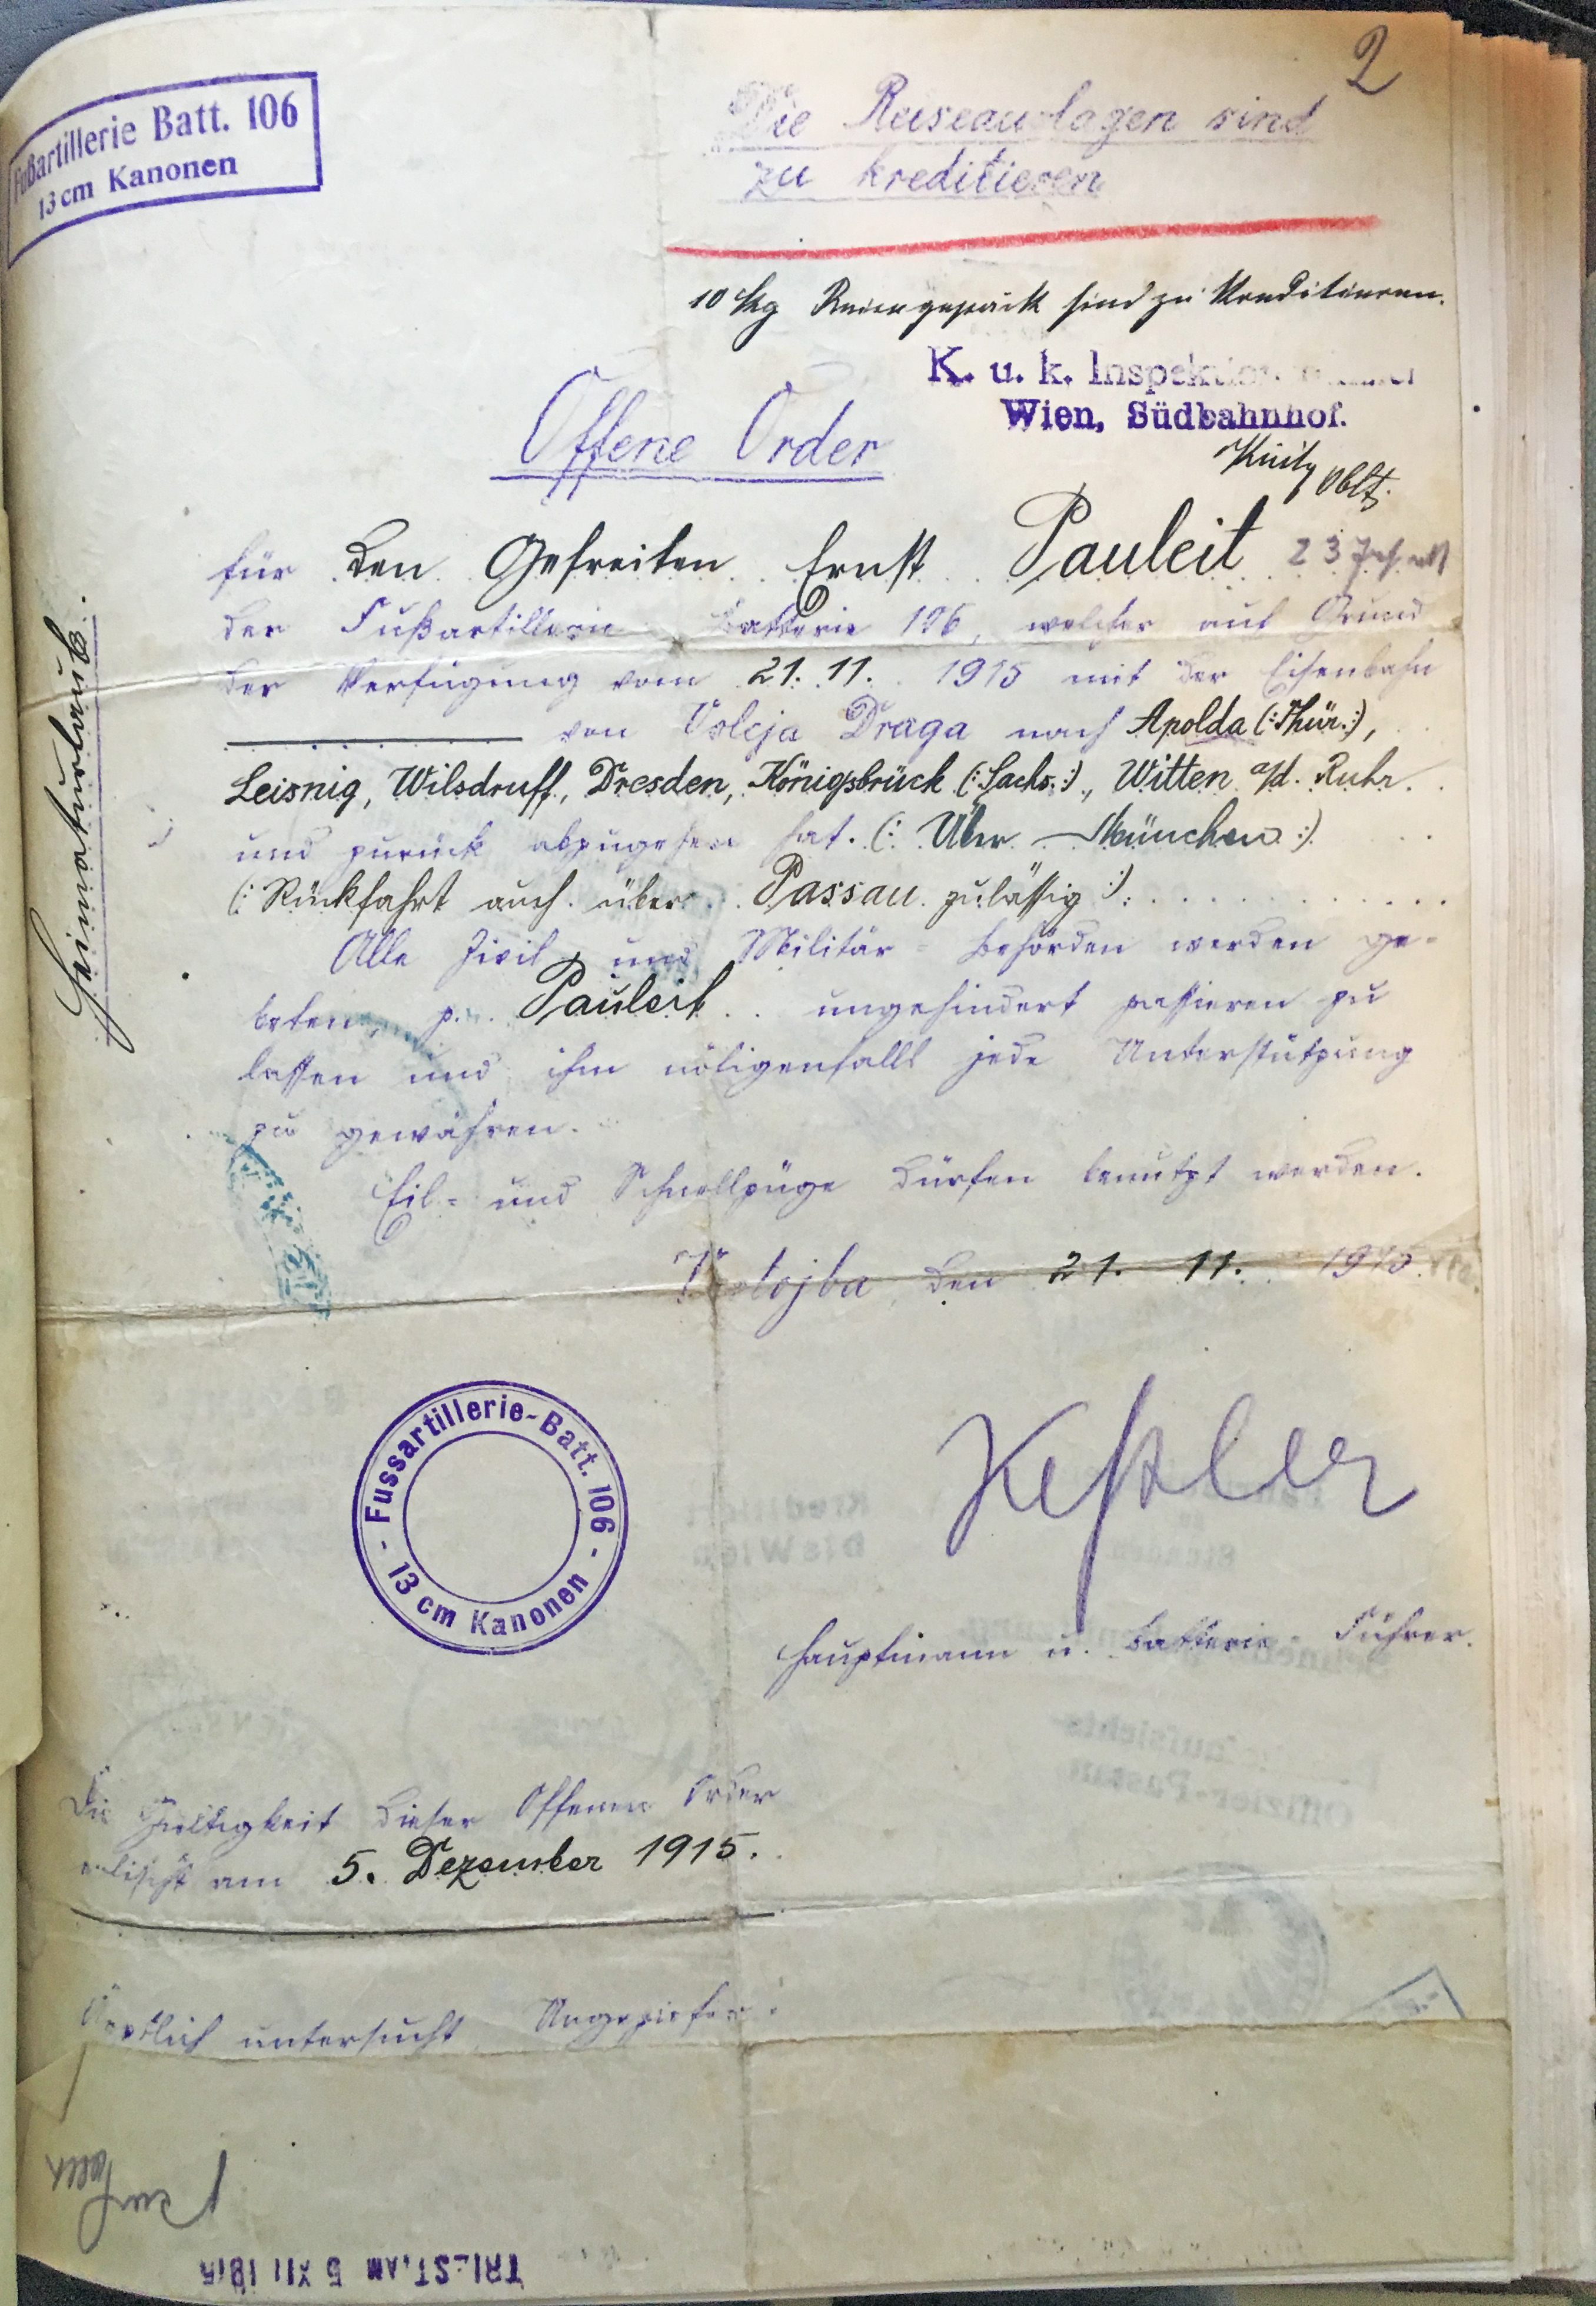 2
Fußartillerie Batt. 106
13 cm Kanonen
Die Reiseauslagen sind
zu kreditieren
10 kg Reisegepäck sind zu kreditieren.
K. u. k. Inspektions
Wien, Südbahnhof.
Oblt.
Offene Order
für den Gefreiten Ernst Pauleit 23
der Fußartillerie Batterie 106, welcher auf Grund
der Verfügung vom 21. 11. 1915 mit der Eisenbahn
von Voleja Draga nach Apolda (:Thür.:),
Leisnig, Wilsdruff, Dresden, Königsbrück (:Sachs.:), Witten a/d. Ruhr.
und zurück abzugehen hat. (: Über München :)
(: Rückfahrt auch über Passau zulässig :).
Alle Zivil und Militär = Behörden werden ge-
beten, p. Pauleit ungehindert passieren zu
lassen und ihm nötigenfalls jede Unterstützung
zu gewähren.
Eil= und Schnellzüge dürfen benutzt werden.
den 21. 11. 1915.
Heimaturlaub.
Fussartillerie-Batt. 106
- 13 cm Kanonen -
Keßler
Hauptmann u. Batterie-Führer.
Die Gültigkeit dieser Offenen Order
erlischt am 5. Dezember 1915.
Ärztlich untersucht
TRIEST, AM 5 XII 1915